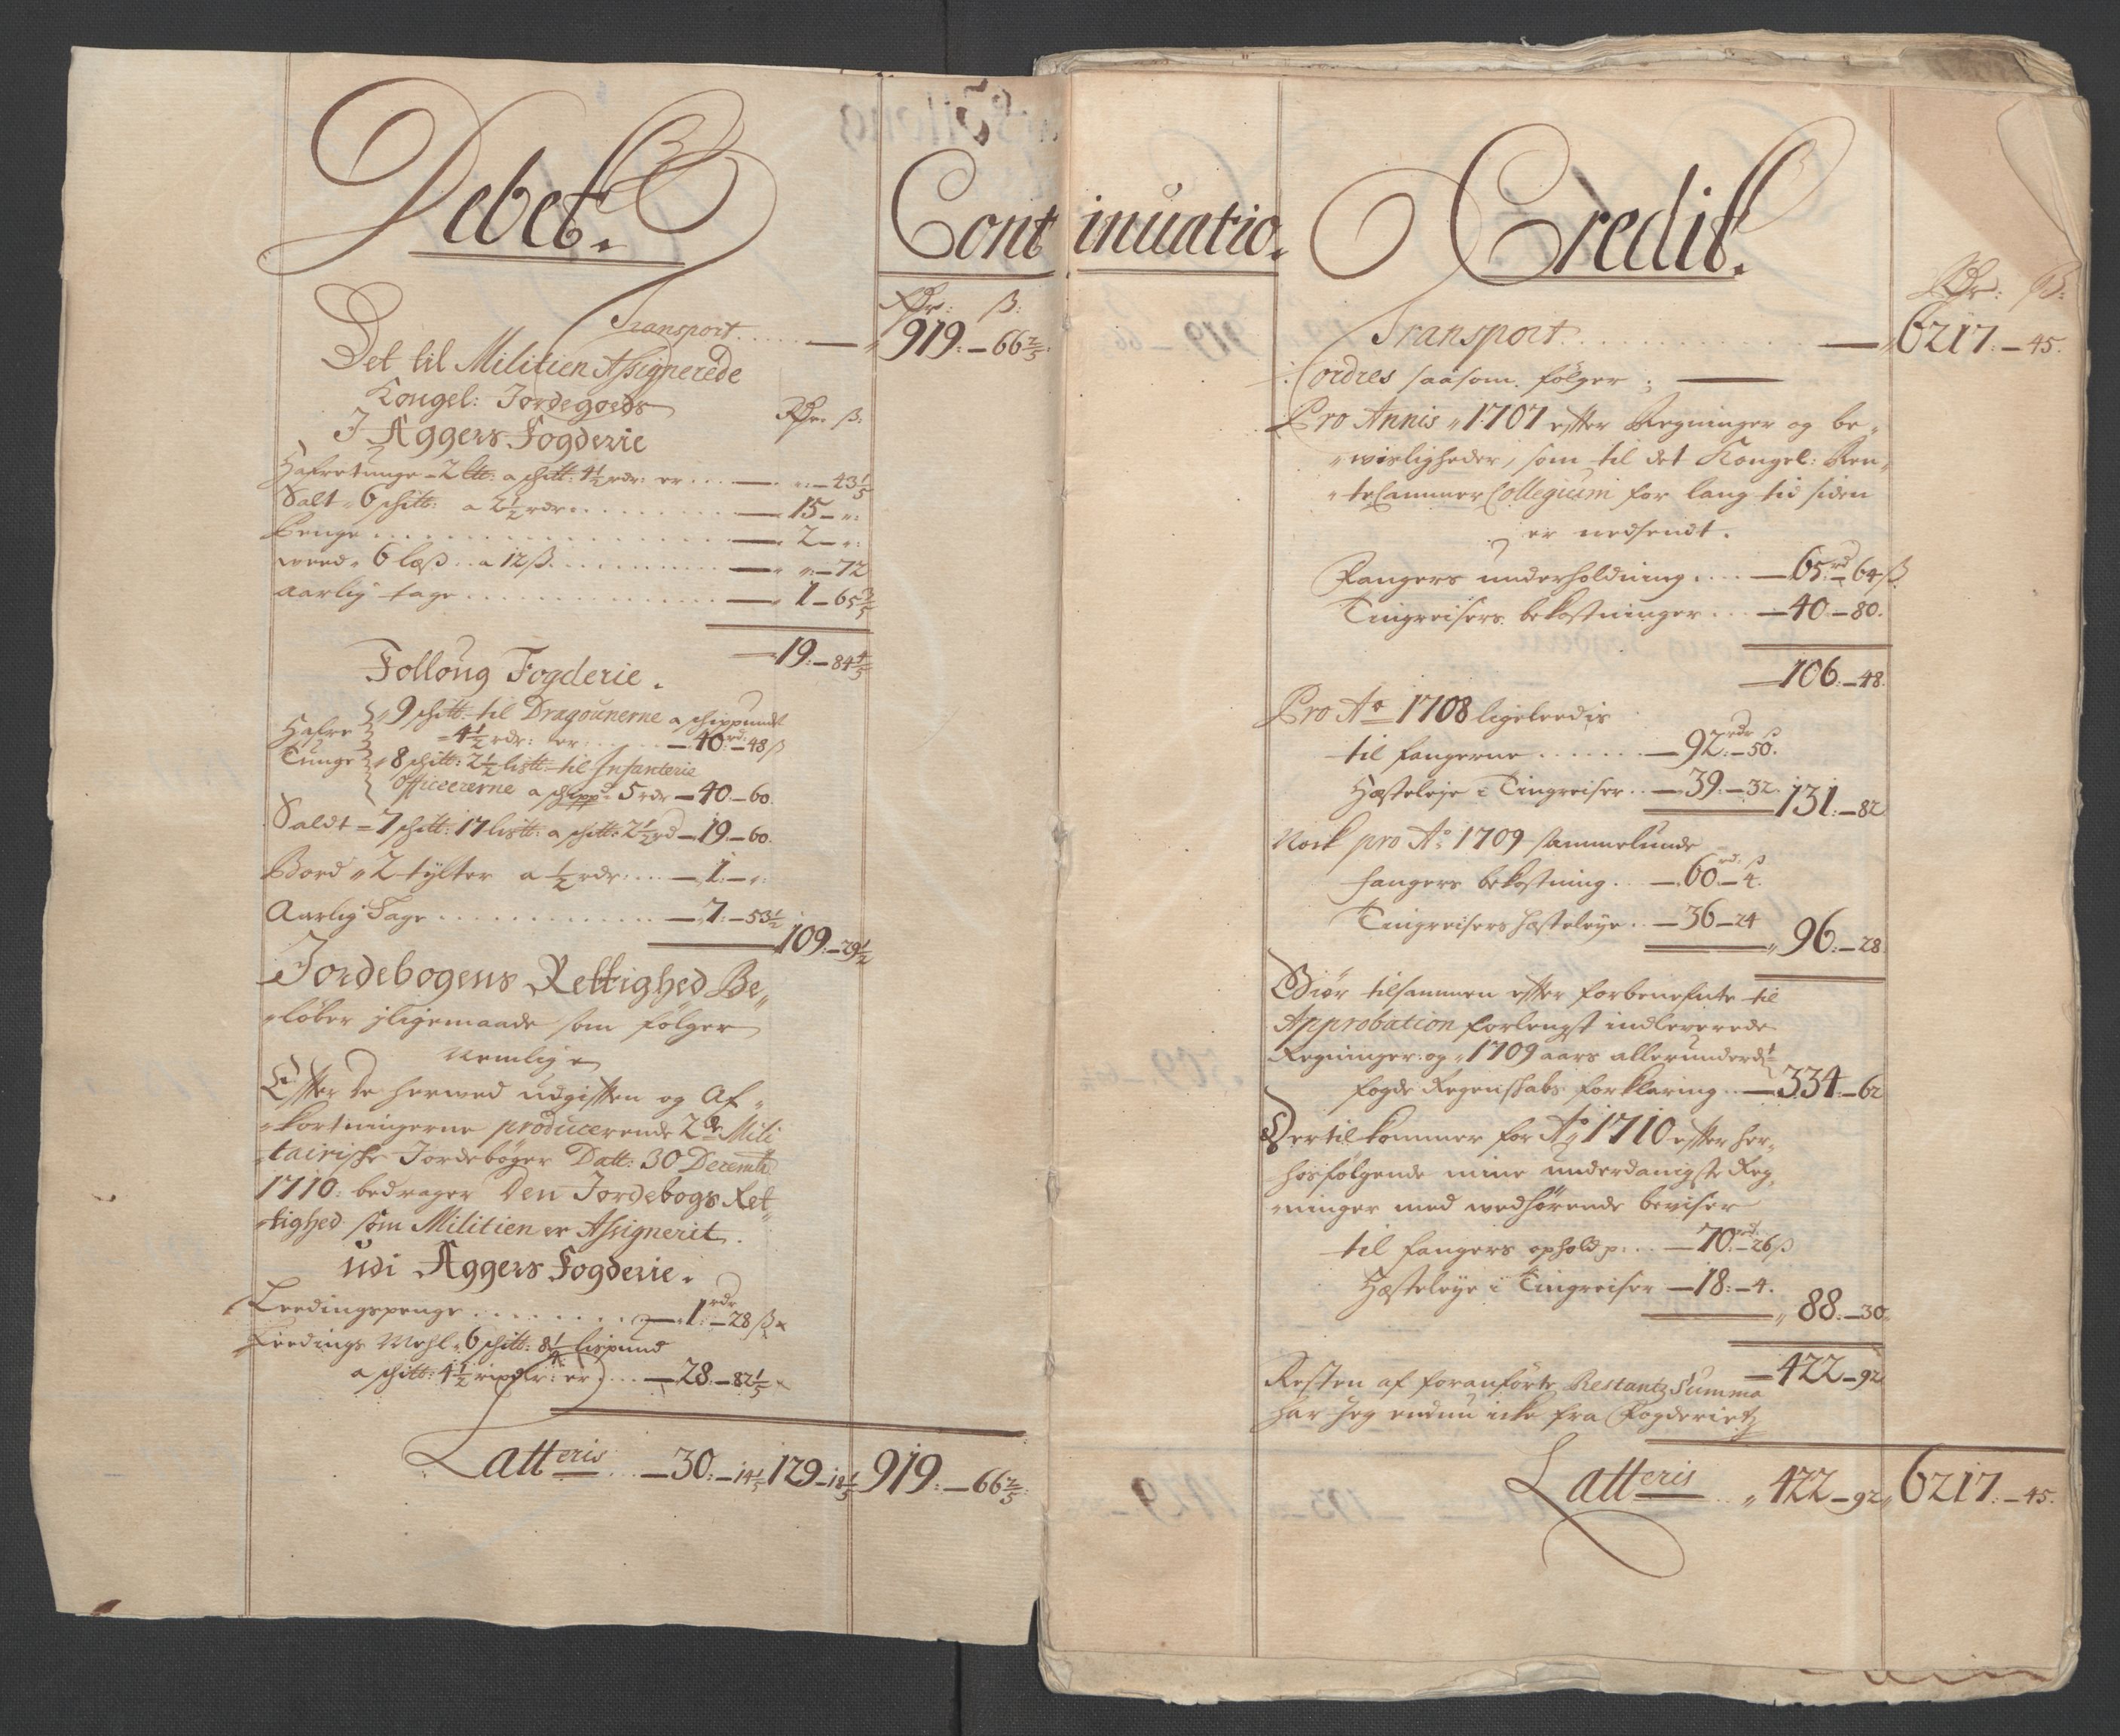 Debet.
Continuatio.
Rdr: ß:
Transport . . . . . — 919: – 66 2/5:
Det til Militien Assignerede
Kongel: Jordegoeds
Rdr: ß:
I Aggers Fogderie
Hafretunge – 2 ltt: a schitt: 4 1/2 rdr: er . . . — „: – 43 1/5
Salt „ 6 schitt: a 2 1/2 rdr: . . . . . . . — 15 – „:
Penge . . . . . . . . . . . . — 2 – „:
weed „ 6 læß . . a 12 ß . . . . . . . — „: – 72
Aarlig tage . . . . . . . . . . — 1 – 65 3/5
19: – 84 4/5
Folloug Fogderie.
Hafre Tunge
„ 9 schitt: til Dragounerne a schippundt
4 1/2 rdr: er: . . . . . – 40 rd: – 48 ß
„ 8 schitt: 2 1/2 listt: til Infanterie
Officererne a schippd: 5 rdr – 40. – 60.
Saldt – 7 schitt: 17 listt: a schitt: 2 1/2 rd – 19. – 60.
Bord „ 2 tylter a 1/2 rdr: . . . – 1: – „:
Aarlig Tage . . . . . . . . . – 7: – 53 1/2
109: – 29 1/2
Jordebogens Rettighed Be„
„løber jligemaade som følger
Nemlig
Efter de hermed udgiften og Af„
„kortningerne producerende 2de Mili
„tairische Jordebøger Datt: 30 Decembr
1710: bedrager Den Jordebogs Ret„
„tighed som Militien er Assignerit.
udi Aggers Fogderie.
Leedingspenge . . . . . . . . – 1 rdr – 28 ß
Leedings Mehl „ 6 schitt: 8 1/4 lispund
a schitt: 4 1/2 rixdlr: er . . . – 28. – 82 1/5
Latteris . . . – 30: – 14 1/5 129 – 18 1/5 919. – 66 2/5:
Credit.
Rdr: ß:
Transport . . . . . . . . — 6217: – 45.
ordres saasom følger :
Pro Annis „ 1707 efter Regninger og be„
„wisligheder, som til det Kongel: Ren„
„teCammer Collegium for lang tid siden
er nedsendt.
Fangers underholdning . . . . – 65: rd – 64 ß
Tingreisers bekostninger . . . – 40. – 80.
106. – 48.
Pro Ao 1708 ligeleedis
til fangerne . . . . . . – 92: rdr – 50. ß
Hæsteleje i Tingreiser . . – 39. – 32. 131. – 82.
Nock pro Ao: 1709 sammelunde
fangers bekostning . . – 60 rd: – 4. ß
Tingreisers hæsteleye . . – 36 – 24
„ 96: – 28.
Giør tilsammen efter forbenefnte til
Approbation forlengst indleverede
Regninger: og „ 1709 aars allerunderd:
fogde Regenskabs forklaring . . – 334. – 62
Dertil kommer for Ao 1710 efter her„
hosfølgende mine underdanigste Reg„
„ninger med wedhørende beviser
til fangers ophold p: . . – 70: rd – 26 ß
Hæsteleye i Tingreiser – 18: – 4.
„ 88. – 30
422 – 92
Resten af foranførte Restantz Summa
har Jeg endnu icke fra Fogderietz
Latteris . . „ 422 – 92 „ 6217: – 45.